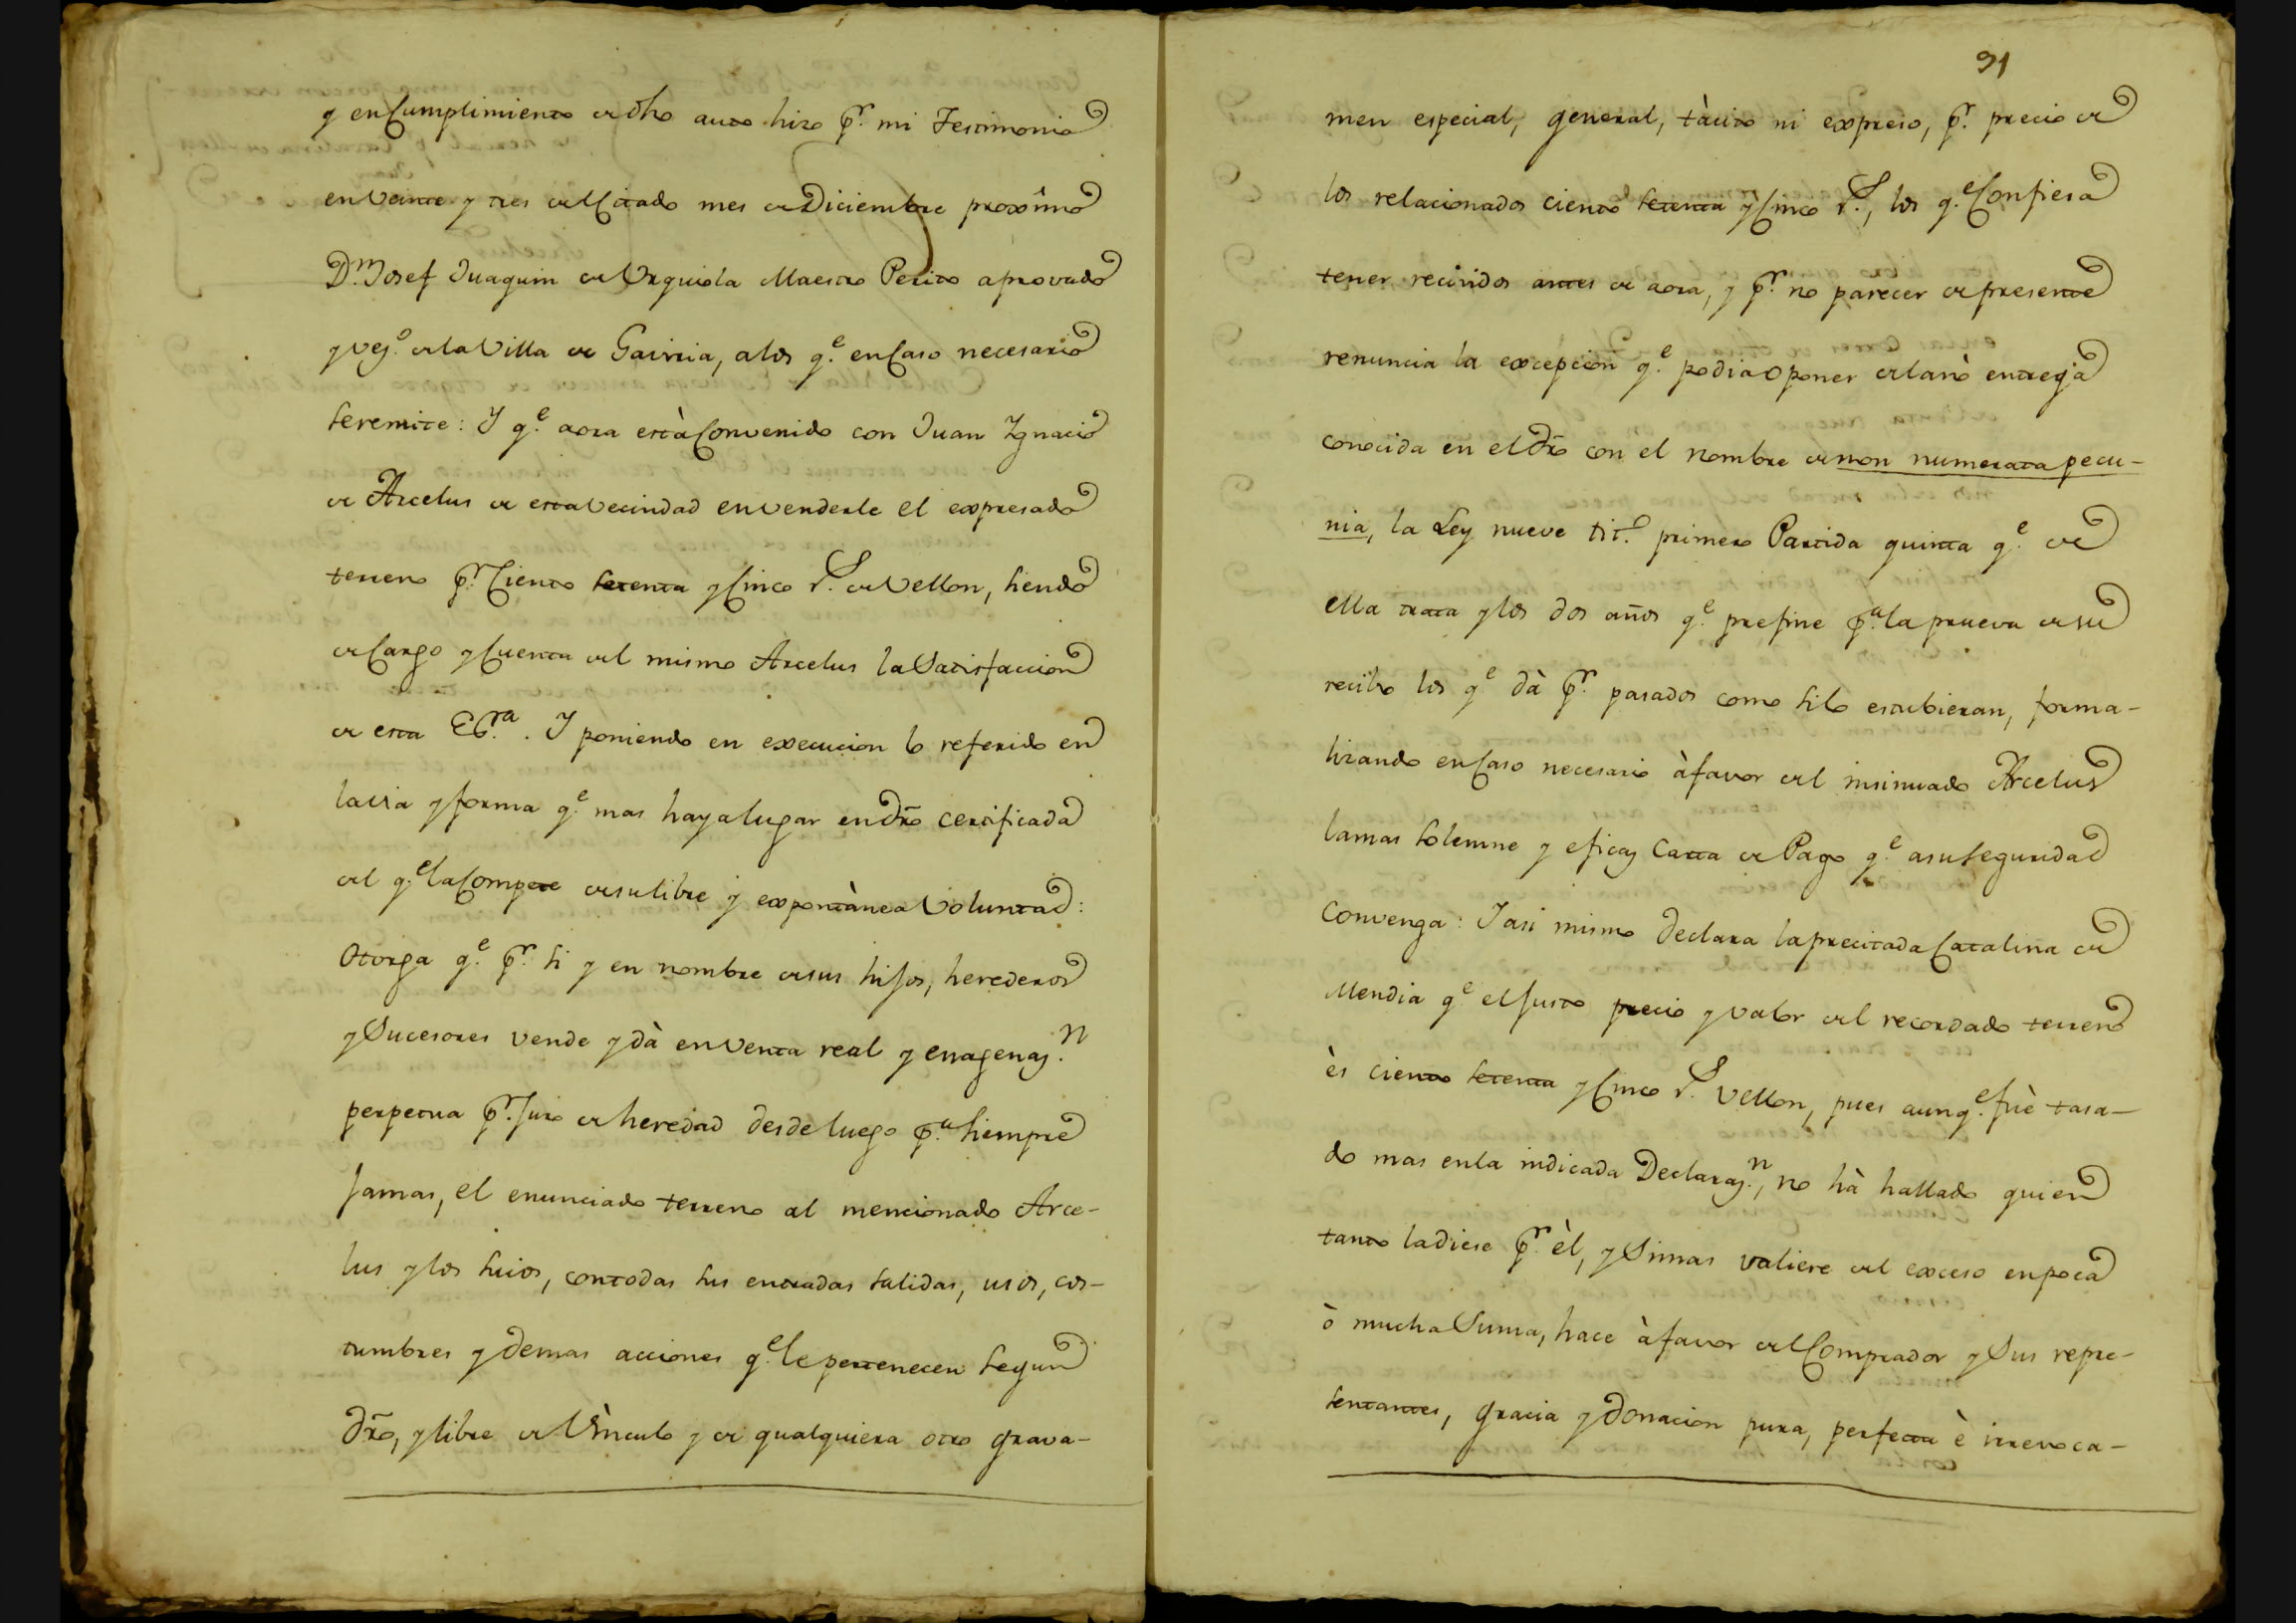 y en Cumplimiento de dho auto hizo pr. mi Testimonio
en Veinte y tres del Citado mes de Diciembre proxîmo
Dn. Josef Juaquin de Urquiola Maestro Perito aprovado
y vezo. de la Villa de Gaviria, a los qe. en Caso necesario
se remite: Y qe. aora està Convenido con Juan Ygnacio
de Arcelus de esta vecindad en venderle el expresado
terreno pr. Ciento setenta y Cinco rs. de Vellon, siendo
de Cargo y Cuenta del mismo Arcelus la Satisfaccion
de esta Esra. Y poniendo en execucion lo referido en
la via y forma qe. mas haya lugar en dro certificada
del qe. la Compete de su libre y expontànea Voluntad:
Otorga qe. pr. si y en nombre de sus hijos, herederos
y Sucesores vende y dà en Venta real y enagenazn.
perpetua pr. Juro de heredad desde luego pa. siempre
Jamas, el enunciado terreno al mencionado Arce-
lus y los suios, con todas sus entradas salidas, usos, cos-
tumbres y demas acciones qe. le pertenecen segun
dro, y libre de Vìnculo y de qualquiera otro grava-
91
men especial, general, tàcito ni expreso, pr. precio de
los relacionados ciento setenta y Cinco rs., los qe. Confiesa
tener recividos antes de aora, y pr. no parecer de presente
renuncia la excepcion qe. podia oponer de la nò entrega
conocida en el dro con el nombre de non numerata pecu-
nia, la Ley nueve titº. primero Partida quinta qe. de
ella trata y los dos años qe. prefine pa. la prueva de su
recibo los qe. dà pr. pasados como si lo estubieran, forma-
lizando en Caso necesario à favor del insinuado Arcelus
la mas solemne y eficaz Carta de Pago qe. a su seguridad
Convenga: Y asi mismo declara la precitada Catalina de
Mendia qe. el Justo precio y valor del recordado terreno
ès ciento setenta y Cinco rs. Vellon, pues aunqe. fuè tasa-
do mas en la indicada Declarazn., no hà hallado quien
tanto la diese pr. èl, y Si mas valiere del exceso en poca
ò mucha Suma, hace à favor del Comprador y Sus repre-
sentantes, gracia y donacion pura, perfecta è irrevoca-